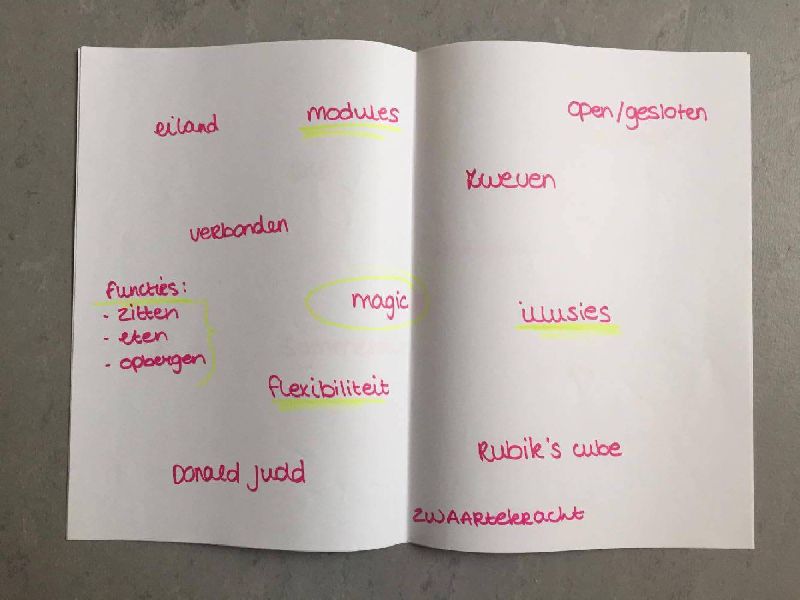 eiland
modules
verbonden
functies:
- zitten
- eten
- opbergen
magic
flexibiliteit
Donald Judd
open/gesloten
zweven
illusies
Rubik's cube
ZWAARtekracht